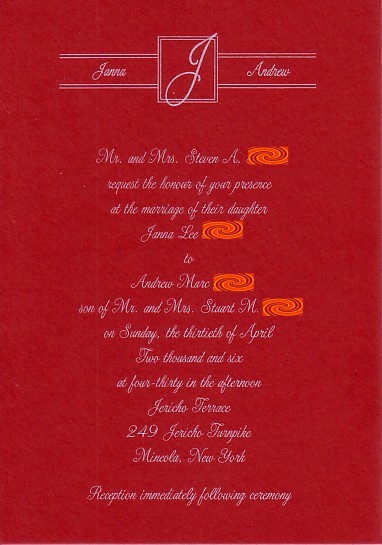 J
Janna Andrew
Mr. and Mrs. Steven A.
request the honour of your presence
at the marriage of their daughter
Janna Lee
to
Andrew Marc
son of Mr. and Mrs. Stuart M.
on Sunday, the thirtieth of April
Two thousand and six
at four-thirty in the afternoon
Jericho Terrace
249 Jericho Turnpike
Mineola, New York
Reception immediately following ceremony